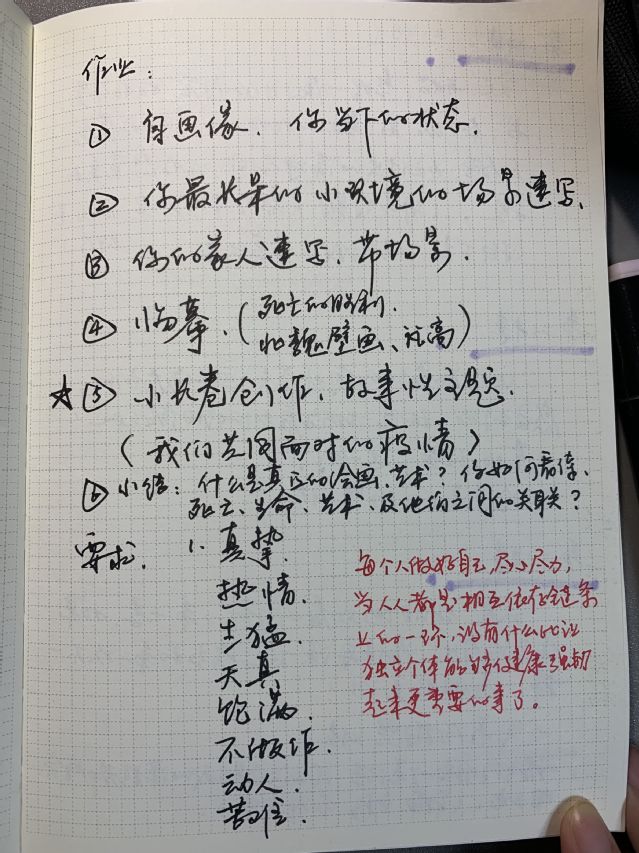 作业：
① 自画像. 你当下的状态.
② 你最长呆的小环境的场景速写.
③ 你的家人速写. 带场景.
④ 临摹. (死亡的胜利.
北魏壁画、    )
☆⑤ 小长卷创作. 故事性主题.
(我们共同面对的疫情)
⑥ 小结: 什么是真正的绘画、艺术? 你如何看待.
死亡、生命、艺术、及他们之间的关联?
要求. 1. 真挚.
热情.
生猛.
天真
饱满.
不做作.
动人.
每个人做好自己, 尽心尽力,
当人人都是相互依存链条
上的一环, 没有什么比让
独立个体能够健康强韧
起来更重要的事了。